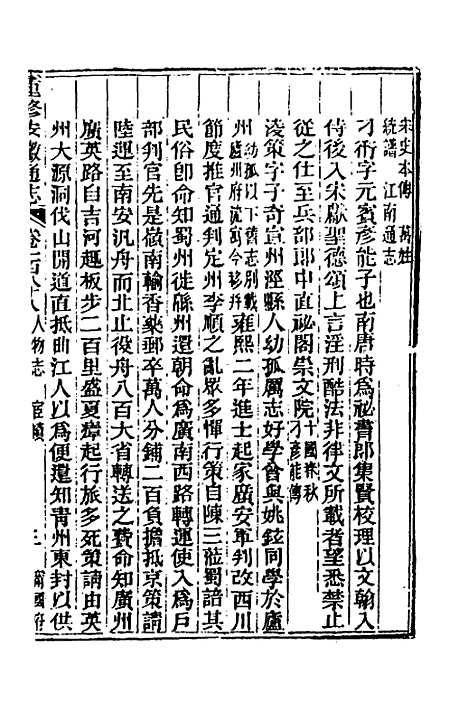 宋史本傳 萬姓
統譜 江南通志
刁衎字元賓彥能子也南唐時爲祕書郎集賢校理以文翰入
侍後入宋獻聖德頌上言淫刑酷法非律文所載者望悉禁止
從之仕至兵部郎中直祕閣崇文院十國春秋刁彥能傳
淩策字子奇宣州涇縣人幼孤厲志好學曾與姚鉉同學於廬
州幼孤以下舊志別載廬州府流寓今移幷雍熙二年進士起家廣安軍判改西川
節度推官通判定州李順之亂眾多憚行策自陳三蒞蜀諳其
民俗卽命知蜀州徙緜州還朝命爲廣南西路轉運使入爲戶
部判官先是嶺南輸香藥郵卒萬人分鋪二百負擔抵京策請
陸運至南安汎舟而北止役舟八百大省轉送之費命知廣州
廣英路自吉河趣板步二百里盛夏瘴起行旅多死策請由英
州大源洞伐山開道直抵曲江人以爲便還知青州東封以供
重修安徽通志 卷一百八十八 人物志 宦績 三 甯國府